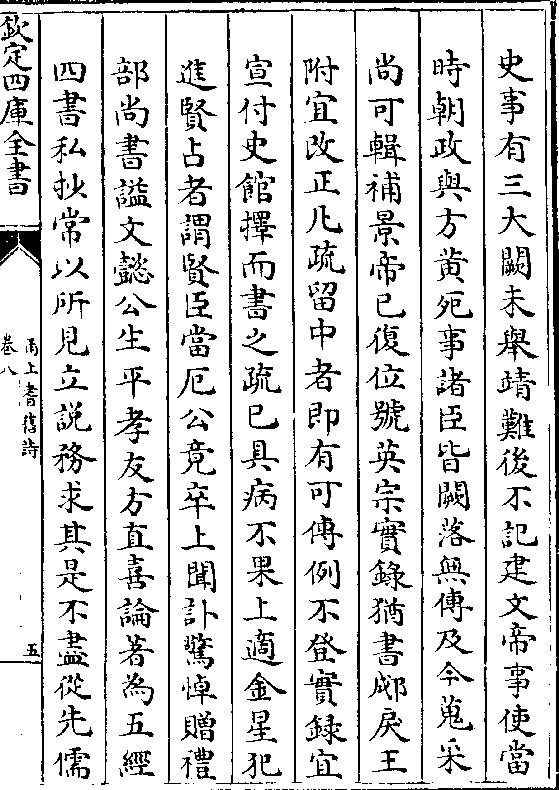 史事有三大闕未舉靖難後不記建文帝事使當
時朝政與方黃死事諸臣皆闕落無傳及今蒐采
尚可輯補景帝已復位號英宗實錄猶書郕戾王
附宜改正凡疏留中者即有可傳例不登實録宜
宣付史館擇而書之疏已具病不果上適金星犯
進賢占者謂賢臣當厄公竟卒上聞訃驚悼贈禮
部尚書謚文懿公生平孝友方直喜論著為五經
四書私抄常以所見立說務求其是不盡從先儒
欽定四庫全書
甬上耆舊詩
卷八
五